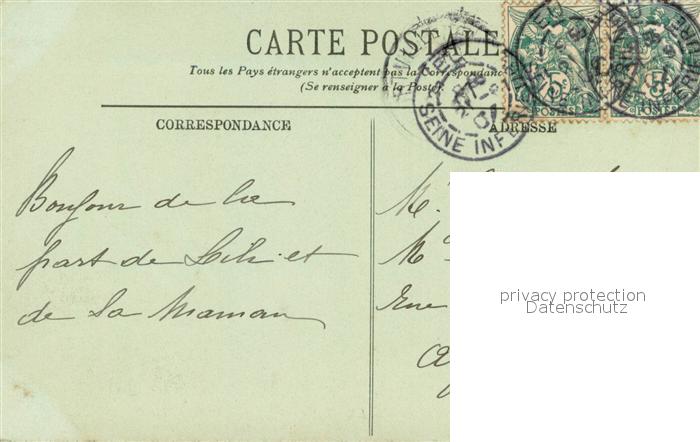 CARTE POSTALE
Tous les Pays étrangers n'acceptent pas la Correspondance
(Se renseigner à la Poste).
CORRESPONDANCE
ADRESSE
SEINE INFRE
5
POSTES
5
POSTES
Bonjour de la
part de Lili et
de Sa Maman
M.
M
rue
privacy protection
Datenschutz